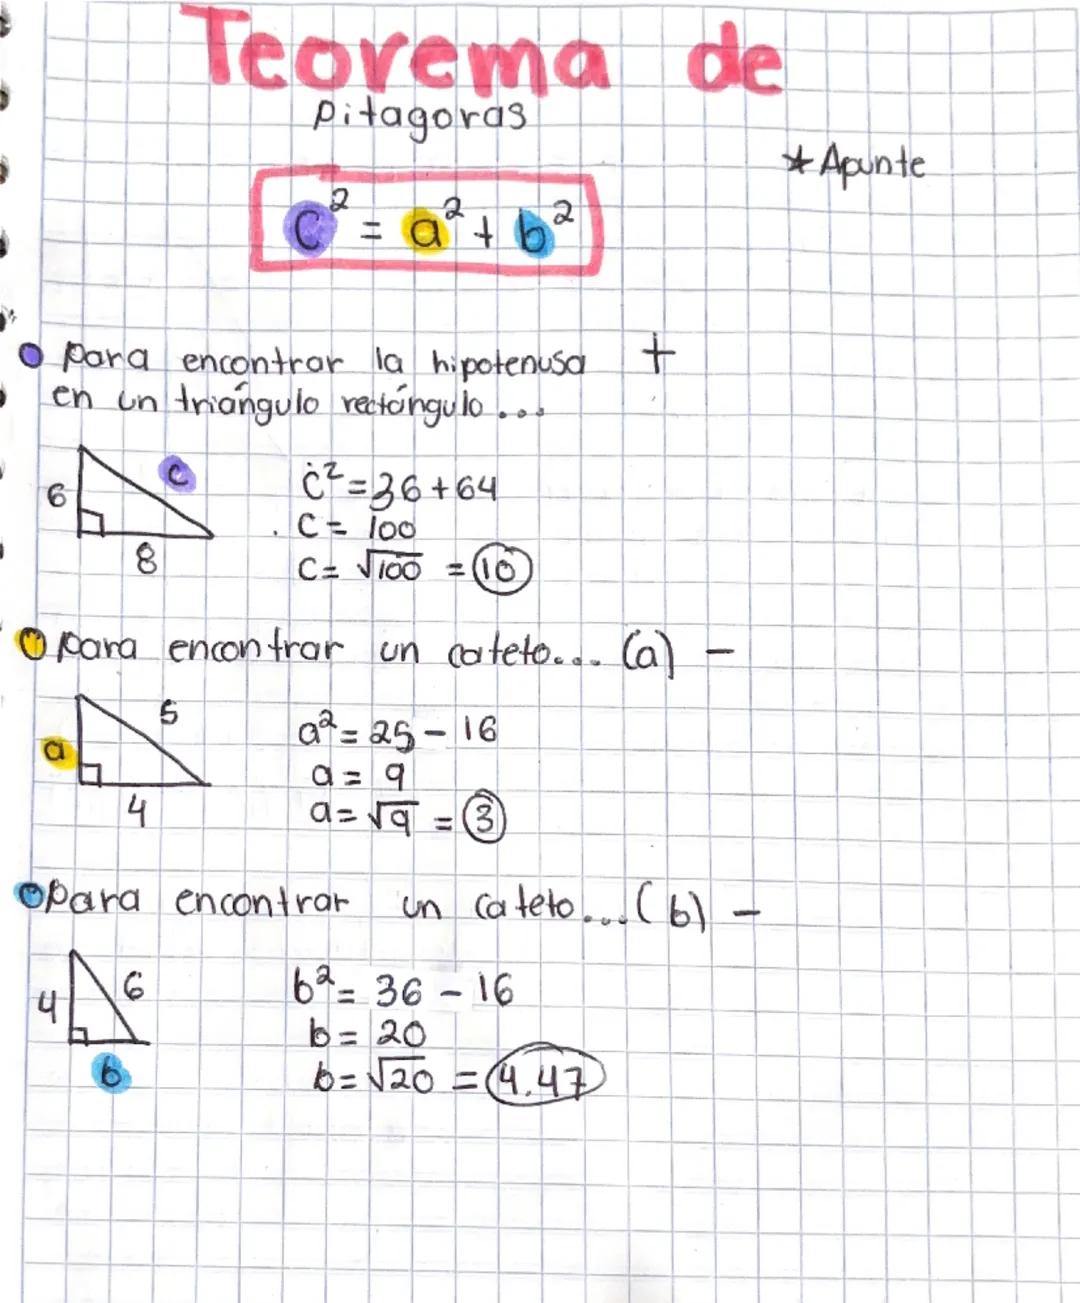 Teorema de
pitagoras
* Apunte
c² = a² + b²
para encontrar la hipotenusa +
en un triángulo rectángulo...
6
c
8
c² = 36 + 64
c = 100
c = √100 = 10
para encontrar un cateto... (a) -
5
a
4
a² = 25 - 16
a = 9
a = √9 = 3
para encontrar un cateto... (b) -
4
6
b
b² = 36 - 16
b = 20
b = √20 = 4.47